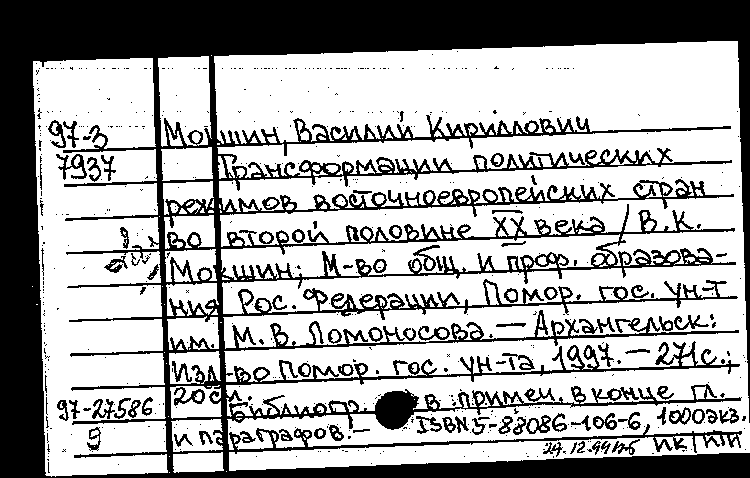 97-3 Мокшин, Василий Кириллович
7937 Трансформации политических
режимов восточноевропейских стран
во второй половине XX века / В.К.
Мокшин; М-во общ. и проф. образова-
ния Рос. Федерации, Помор. гос. ун-т
им. М.В. Ломоносова. — Архангельск:
Изд-во Помор. гос. ун-та, 1997. — 271с.;
20см.
97-27586 Библиогр. в примеч. в конце гл.
9 и параграфов. — ISBN 5-88086-106-6, 1000экз.